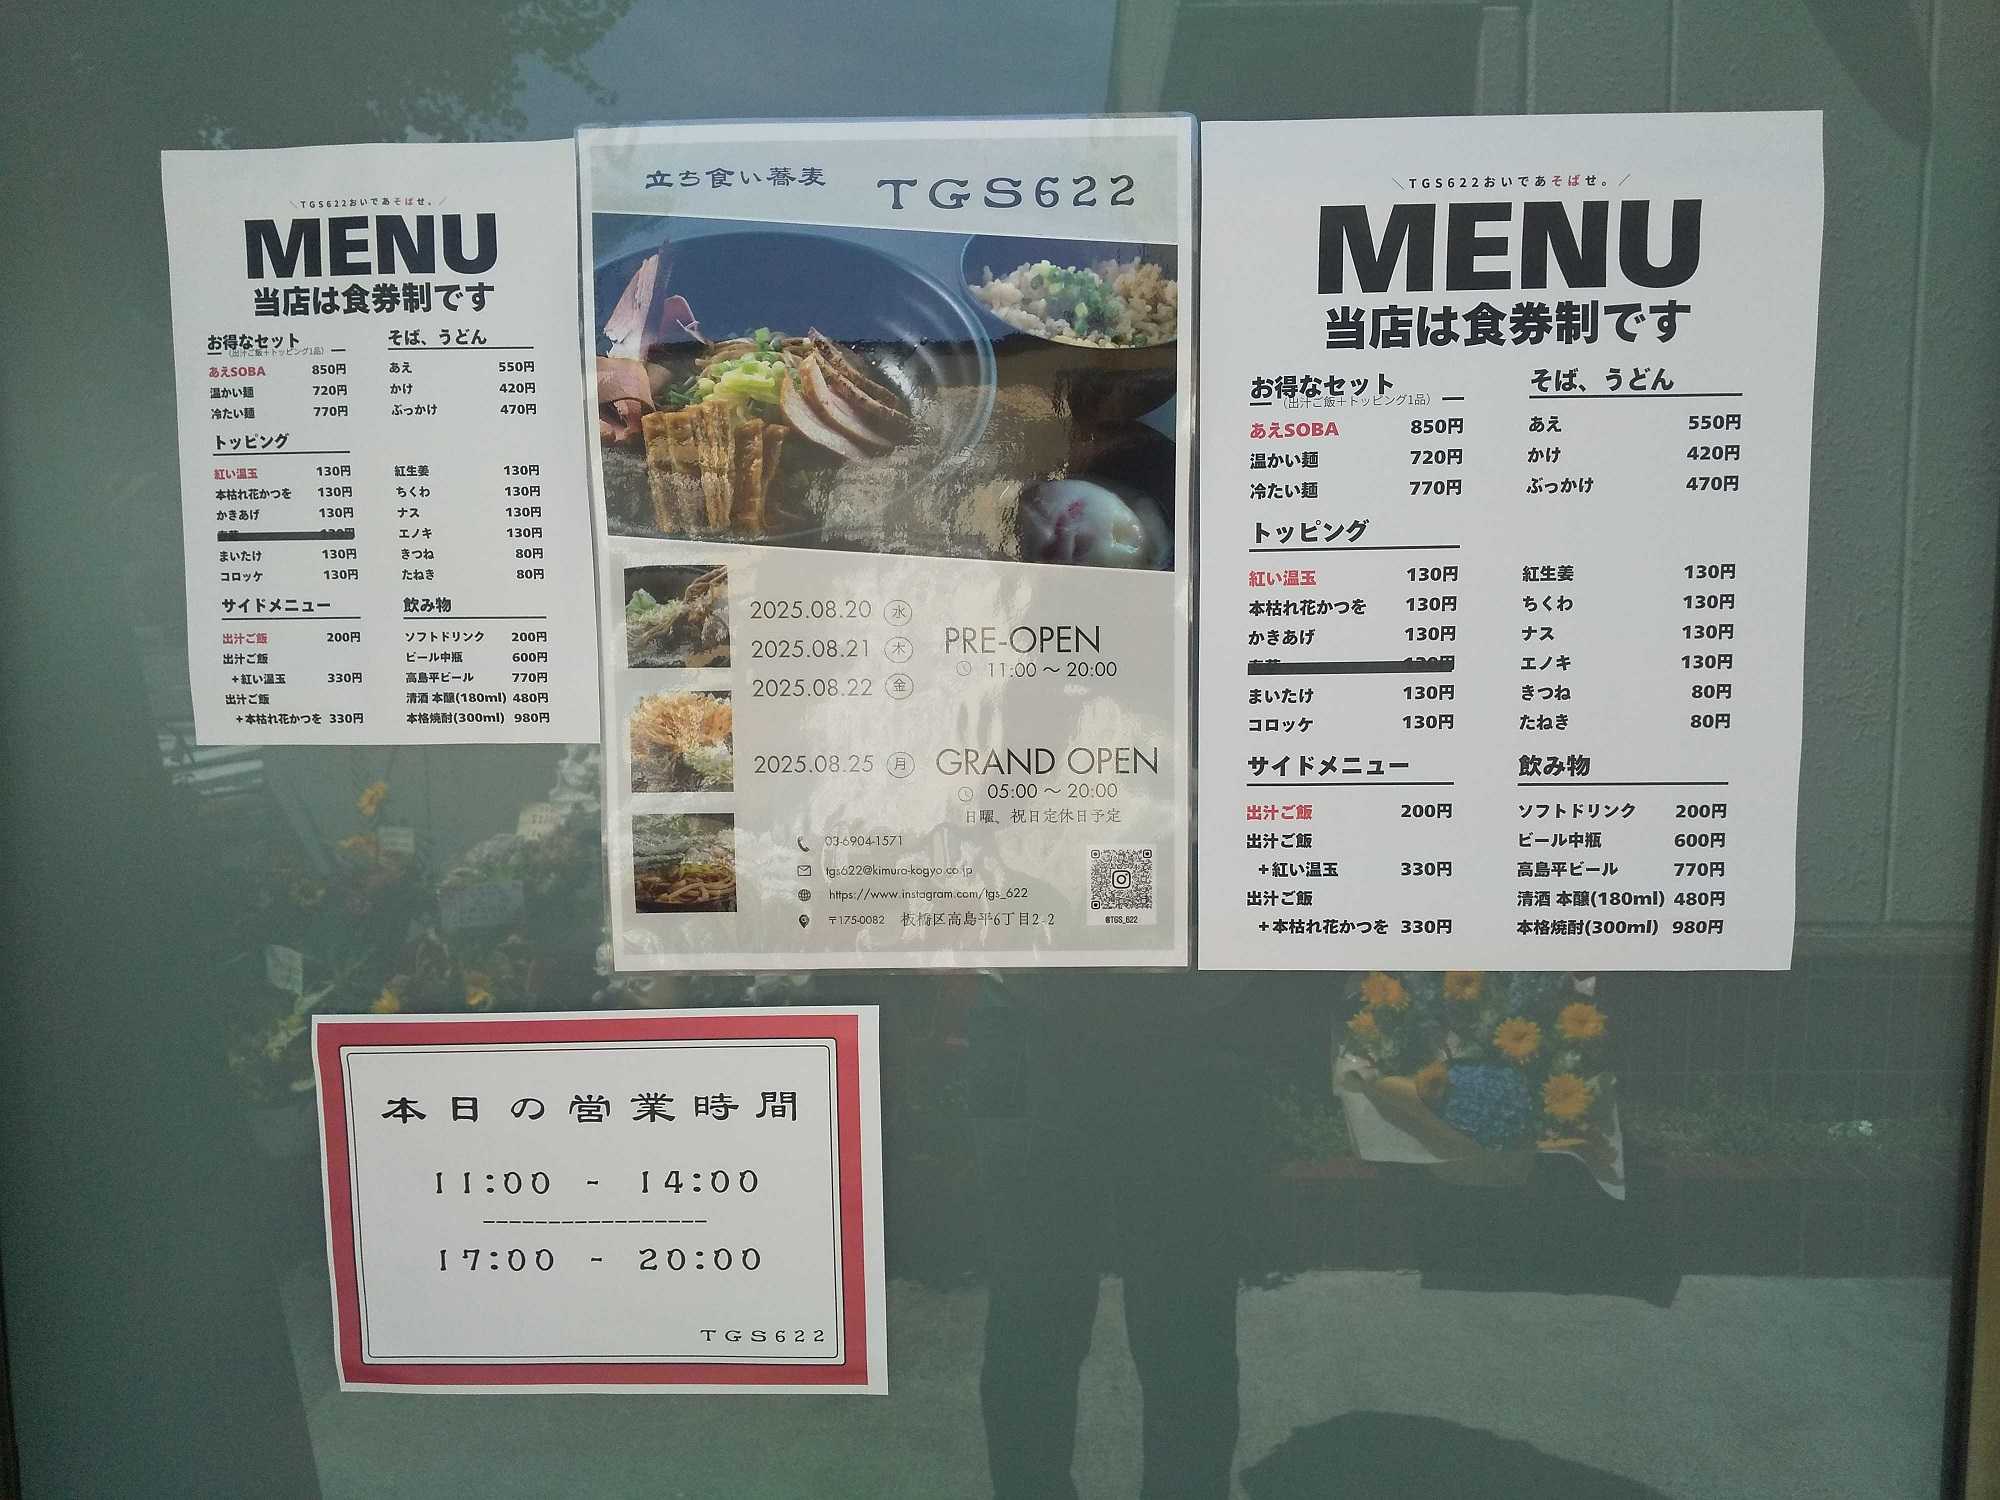 ＼TGS622おいであそばせ。／
MENU
当店は食券制です
お得なセット
（出汁ご飯＋トッピング1品）
あえSOBA 850円
温かい麺 720円
冷たい麺 770円
そば、うどん
あえ 550円
かけ 420円
ぶっかけ 470円
トッピング
紅い温玉 130円
本枯れ花かつを 130円
かきあげ 130円
130円
まいたけ 130円
コロッケ 130円
紅生姜 130円
ちくわ 130円
ナス 130円
エノキ 130円
きつね 80円
たねき 80円
サイドメニュー
出汁ご飯 200円
出汁ご飯
＋紅い温玉 330円
出汁ご飯
＋本枯れ花かつを 330円
飲み物
ソフトドリンク 200円
ビール中瓶 600円
高島平ビール 770円
清酒 本醸(180ml) 480円
本格焼酎(300ml) 980円
立ち食い蕎麦 TGS622
2025.08.20 水
2025.08.21 木
2025.08.22 金
PRE-OPEN
11:00 〜 20:00
2025.08.25 月
GRAND OPEN
05:00 〜 20:00
日曜、祝日定休日予定
03-6904-1571
tgs622@kimura-kogyo.co.jp
https://www.instagram.com/tgs_622
〒175-0082 板橋区高島平6丁目2-2
@TGS_622
＼TGS622おいであそばせ。／
MENU
当店は食券制です
お得なセット
（出汁ご飯＋トッピング1品）
あえSOBA 850円
温かい麺 720円
冷たい麺 770円
そば、うどん
あえ 550円
かけ 420円
ぶっかけ 470円
トッピング
紅い温玉 130円
本枯れ花かつを 130円
かきあげ 130円
130円
まいたけ 130円
コロッケ 130円
紅生姜 130円
ちくわ 130円
ナス 130円
エノキ 130円
きつね 80円
たねき 80円
サイドメニュー
出汁ご飯 200円
出汁ご飯
＋紅い温玉 330円
出汁ご飯
＋本枯れ花かつを 330円
飲み物
ソフトドリンク 200円
ビール中瓶 600円
高島平ビール 770円
清酒 本醸(180ml) 480円
本格焼酎(300ml) 980円
本日の営業時間
11:00 - 14:00
-----------------
17:00 - 20:00
TGS622